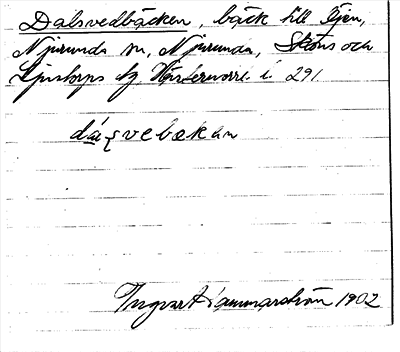 Dalsvedbäcken, bäck till
Njurunda sn, Njurunda, Sköns och
Ljustorps tg Västernorrl. l. 291.
dáɭsvebɛkɑn
Ingvar Hammarström 1902